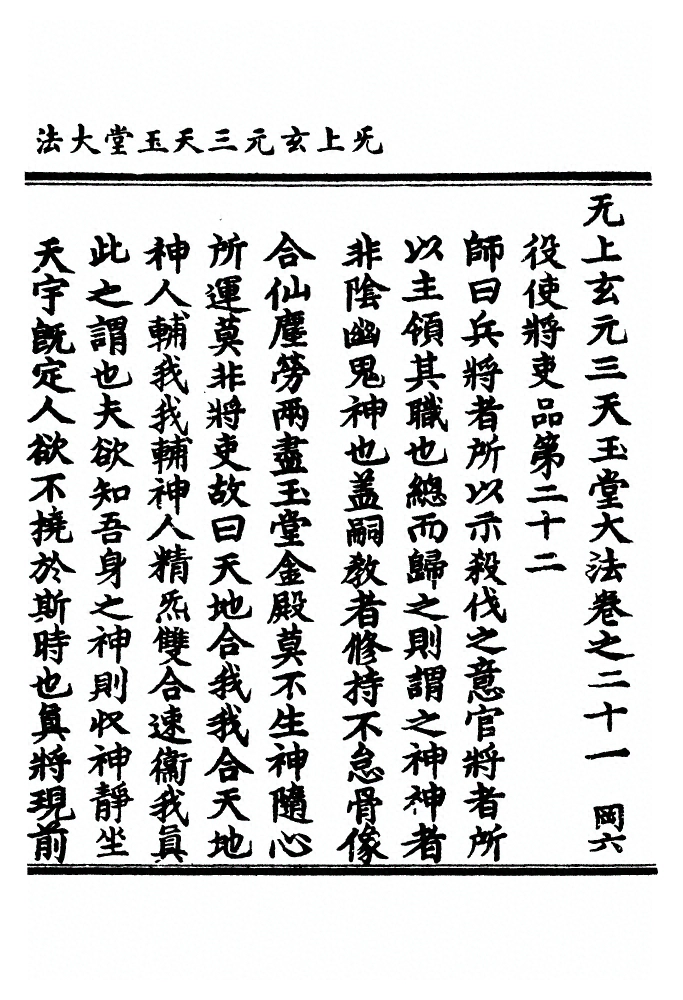 无上玄元三天玉堂大法
无上玄元三天玉堂大法卷之二十一 岡六
役使將吏品第二十二
師曰兵將者所以示殺伐之意官將者所
以主領其職也總而歸之則謂之神神者
非陰幽鬼神也盖嗣敎者修持不怠骨像
合仙塵勞兩盡玉堂金殿莫不生神隨心
所運莫非將吏故曰天地合我我合天地
神人輔我我輔神人精炁雙合速衞我眞
此之謂也夫欲知吾身之神則収神靜坐
天宇旣定人欲不撓於斯時也眞將現前